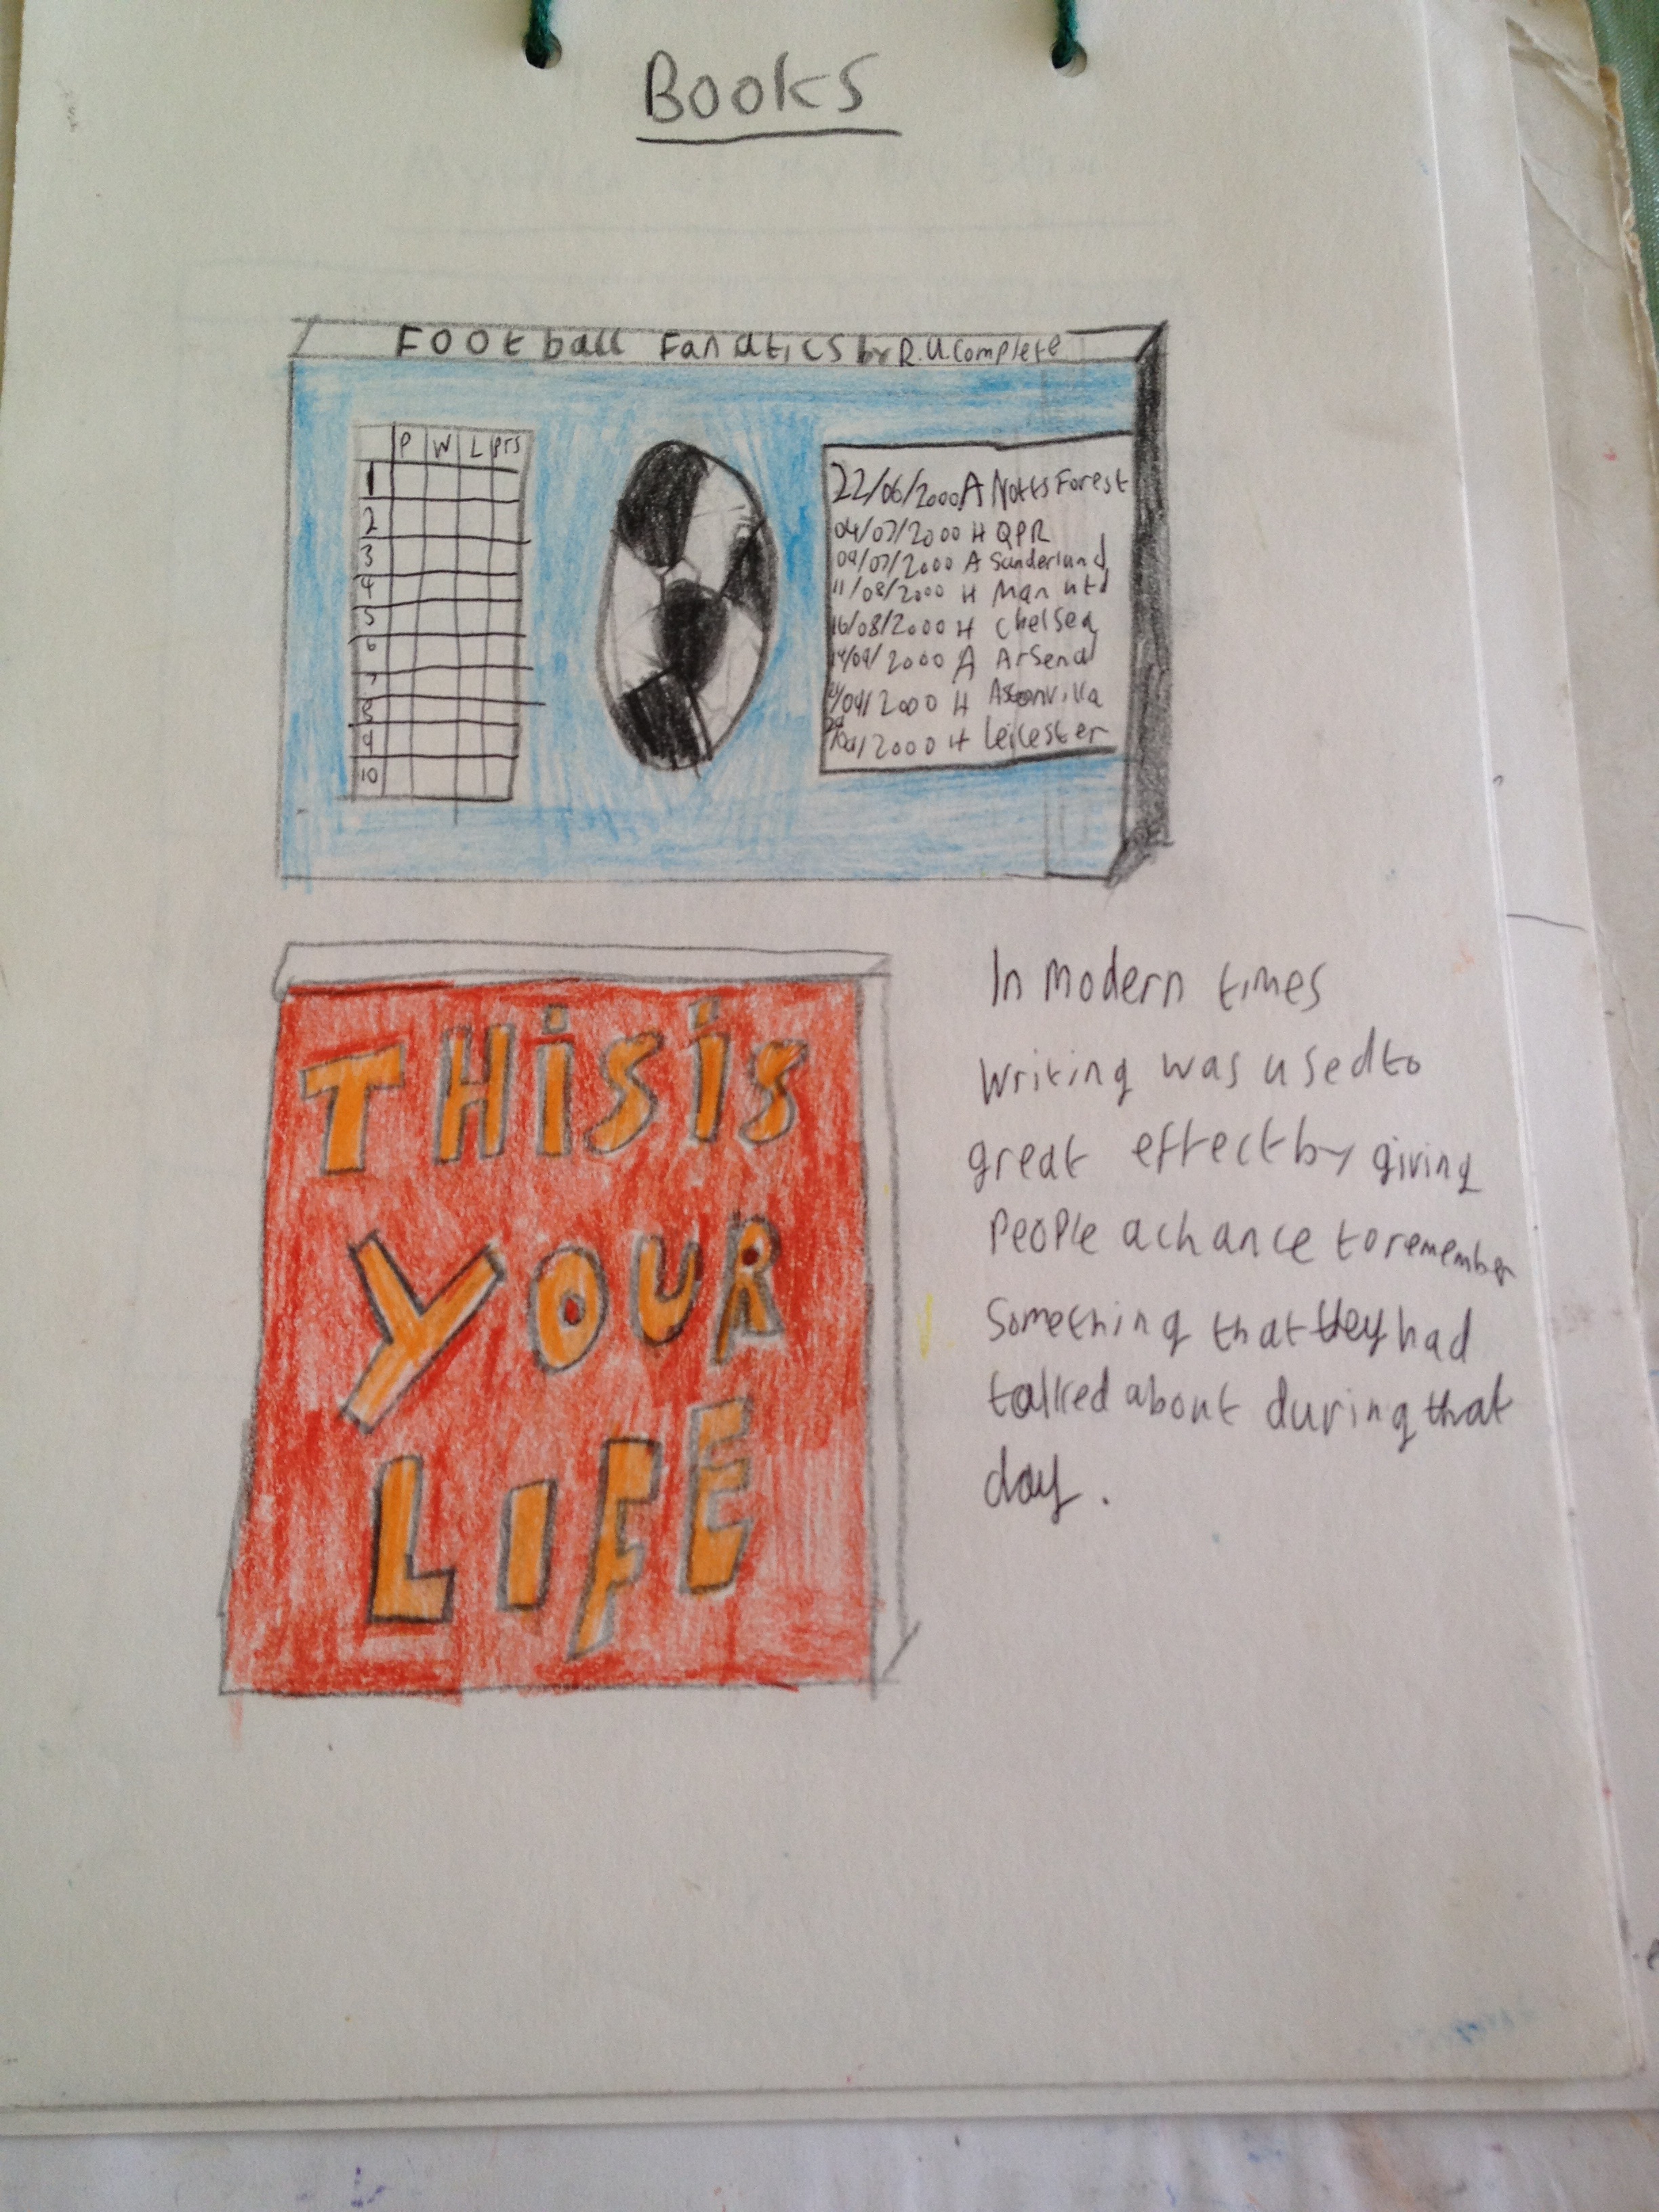 Books
Football Fanatics by R.U.Complete
P W L Pts
1
2
3
4
5
6
7
8
9
10
22/06/2000 A Notts Forest
04/07/2000 H QPR
09/07/2000 A Sunderland
11/08/2000 H Man utd
16/08/2000 H Chelsea
14/09/2000 A Arsenal
/09/2000 H Astonvilla
/2000 H Leicester
THiS iS
YOUR
LIFE
In modern times
writing was used to
great effect by giving
People a chance to remember
Something that they had
talked about during that
day.